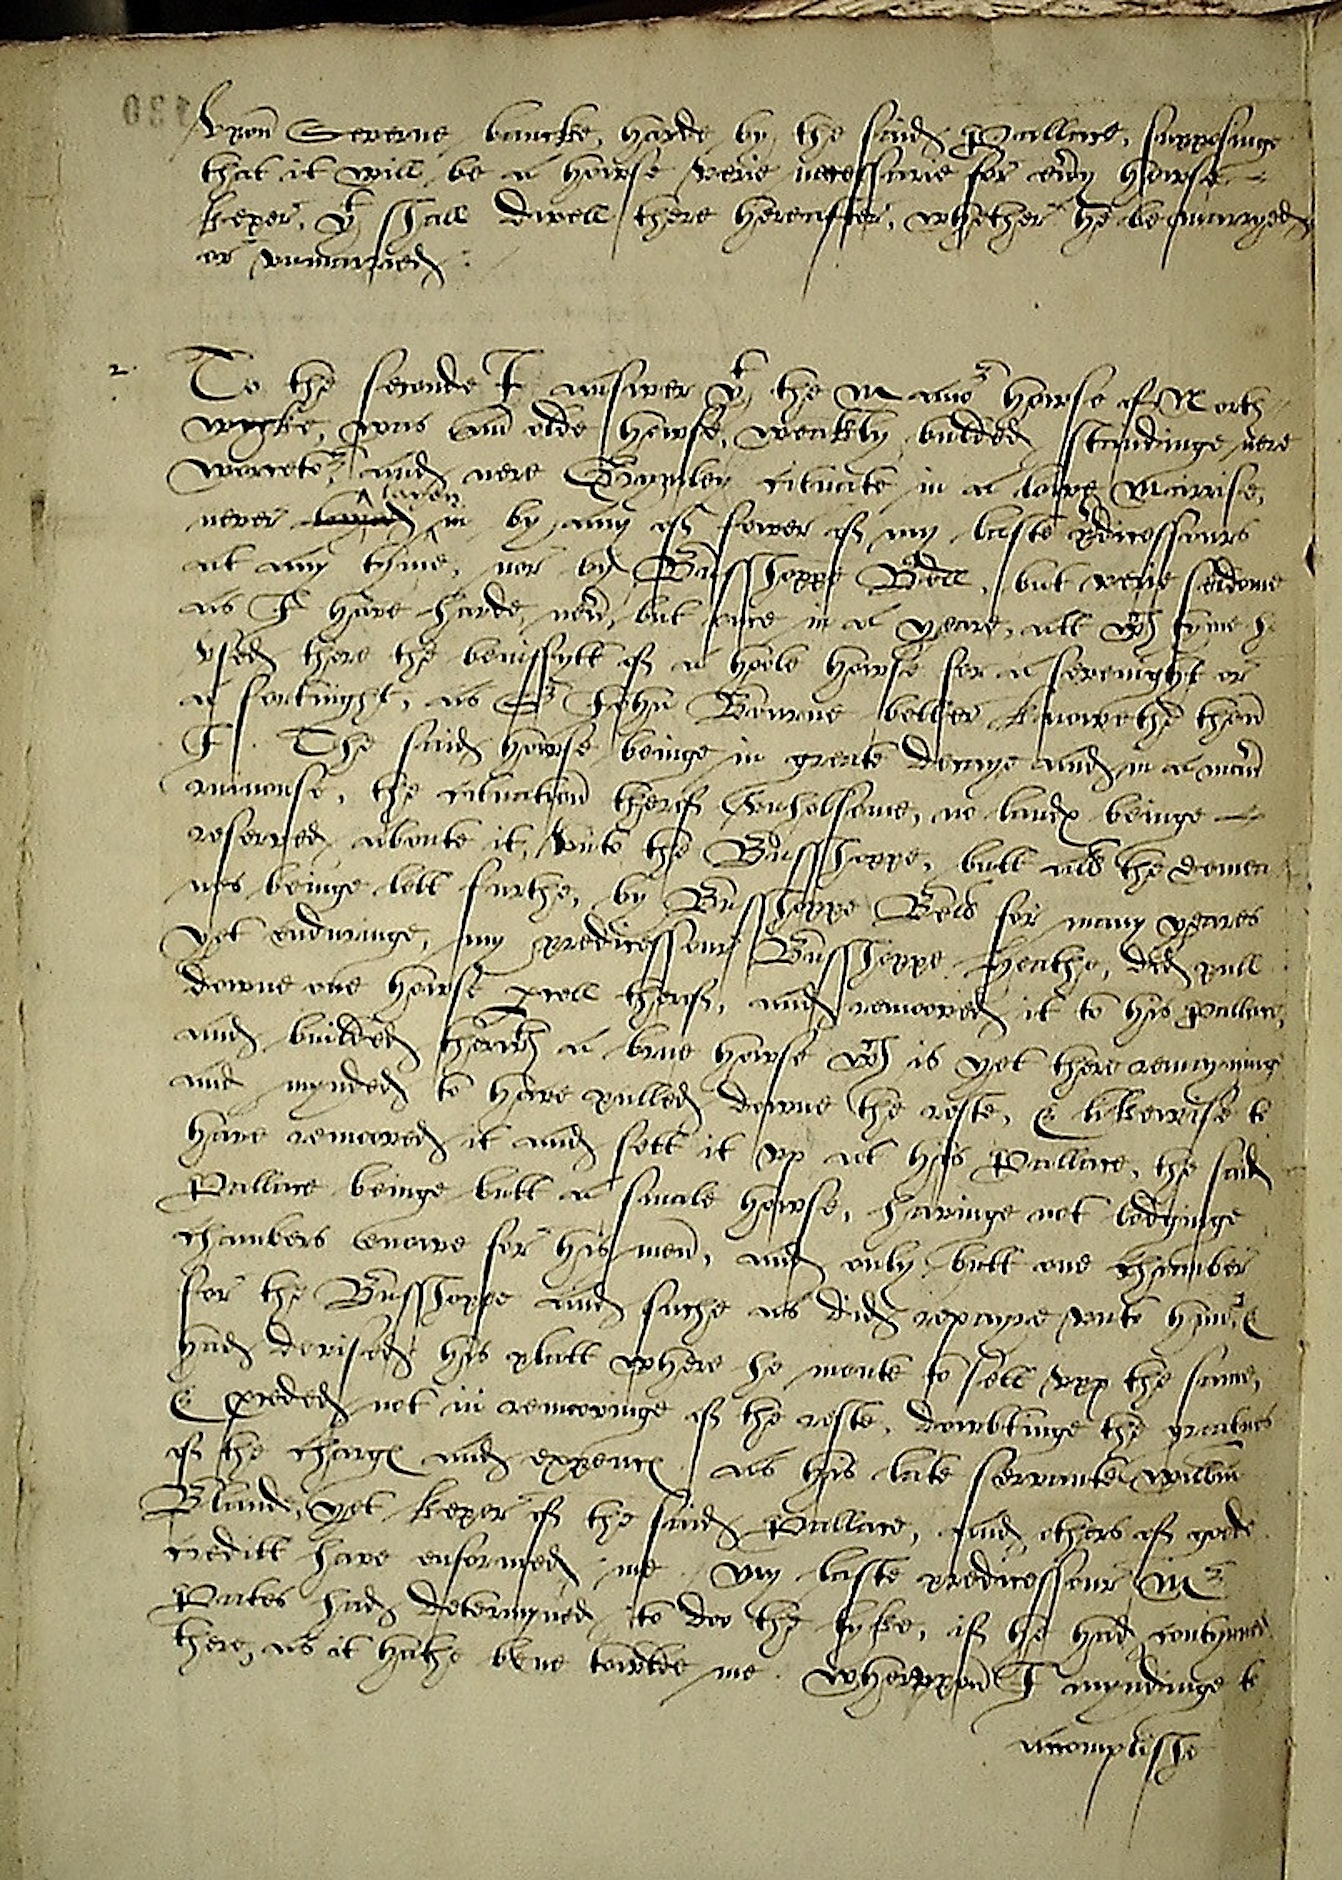 vpon Severne bancke, harde by the said Pallace, supposinge
that it will be a howse verie necessarie for eny howse
keper, yt shall dwell there hereafter, whether he be marryed
or vnmarried :
2. To the seconde I answer yt the Manor howse of North
wycke, was an olde howse, weakly builded standinge nere
worcetor, and nere cituate in a lowe Marrise,
never layen in by any of fower of my laste predicessours
at any thyme, nor by Busshoppe Bell, but verie seldome
as I have harde, but once in a yeare, att wch tyme he
vsed there the benifytt of a hoole howse for a sevenight or
a fortnight, as Sr John Bourne better knowethe then
I. The said howse beinge in greate decaye and in a maner
ruinouse, the cituation therof vnholsome, no landes beinge
reserved aboute it, vnto the Busshoppe, butt all the demea
nes beinge lett furthe, by Busshoppe Bell for many yeares
yet enduringe, my predicessour Busshoppe Heathe, did pull
downe one howse therof, and remooved it to his Pallace,
and builded therwth a howse wch is yet there remayninge
and mynded to have pulled downe the reste, & likewise to
have remooved it and sett it vp at his Pallace, the said
Pallace beinge butt a smale howse, havinge not lodginge
chambers enowe for his men, and only butt one chamber
for the Busshoppe and suche as did repayre vnto hime, &
had devised his platt where he mente to sett vpp the same,
& proceded not in remoovinge of the reste, dowbtinge the greatnes
of the charges and expences as his late servante William
Bland, yet keper of the said Pallace, and others of goode
creditt have enformed me. My laste predicessour Mr
Pates had determyned to doo the lyke, if he had contynued
there, as it hathe bene towlde me. Whervpon I myndinge to
accomplishe